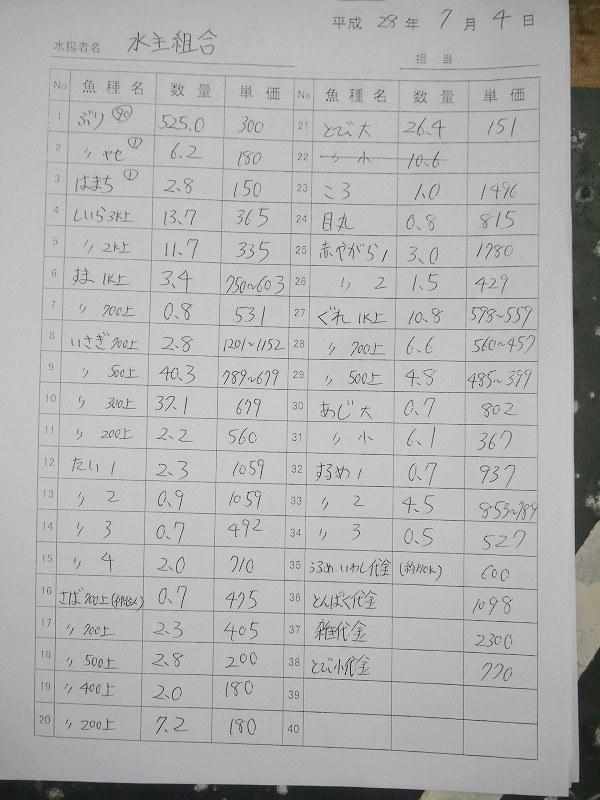 平成 28 年 7 月 4 日
水揚者名 水主組合
担当
No 魚種名 数量 単価 No 魚種名 数量 単価
1 ぶり 90 525.0 300 21 とび大 26.4 151
2 〃 ヤセ 1 6.2 180 22 〃 小 10.6
3 はまち 1 2.8 150 23 ころ 1.0 1496
4 しいら3K上 13.7 365 24 目丸 0.8 815
5 〃 2K上 11.7 335 25 赤やがら1 3.0 1780
6 すま 1K上 3.4 750~603 26 〃 2 1.5 429
7 〃 700上 0.8 531 27 ぐれ 1K上 10.8 598~559
8 いさぎ700上 2.8 1201~1152 28 〃 700上 6.6 560~457
9 〃 500上 40.3 789~679 29 〃 500上 4.8 485~399
10 〃 300上 37.1 679 30 あじ 大 0.7 802
11 〃 200上 2.2 560 31 〃 小 6.1 367
12 たい 1 2.3 1059 32 するめ 1 0.7 937
13 〃 2 0.9 1059 33 〃 2 4.5 853~789
14 〃 3 0.7 492 34 〃 3 0.5 527
15 〃 4 2.0 710 35 うるめ、いわし代金 600
16 さば700上 0.7 475 36 とんぼく代金 1098
17 〃 700上 2.3 405 37 雑代金 2300
18 〃 500上 2.8 200 38 とび小代金 770
19 〃 400上 2.0 180 39
20 〃 200上 7.2 180 40